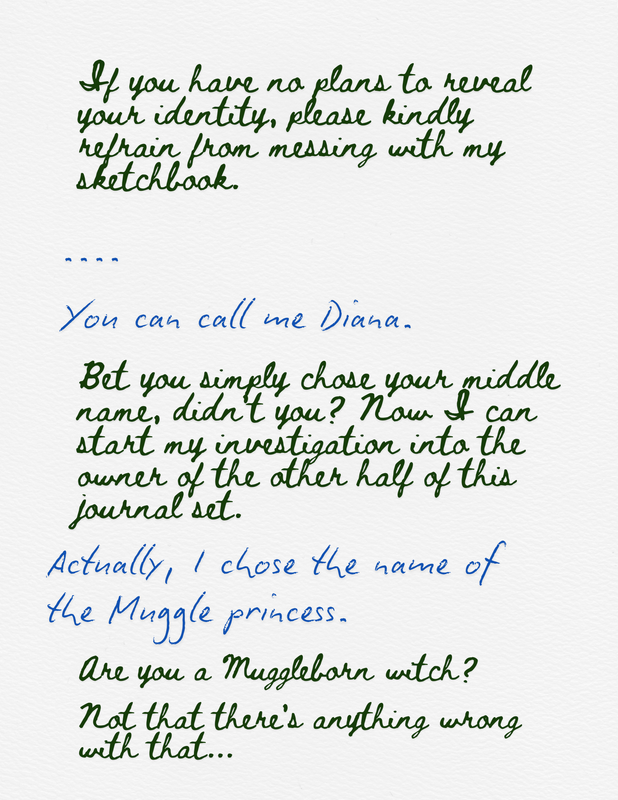 If you have no plans to reveal
your identity, please kindly
refrain from messing with my
sketchbook.
----
You can call me Diana.
Bet you simply chose your middle
name, didn't you? Now I can
start my investigation into the
owner of the other half of this
journal set.
Actually, I chose the name of
the Muggle princess.
Are you a Muggleborn witch?
Not that there's anything wrong
with that...